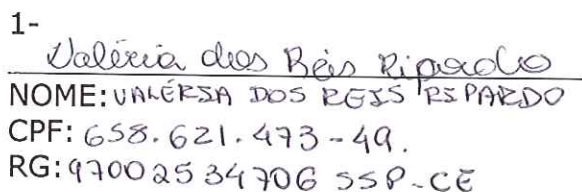 1-
Valéria dos Reis Ripardo
NOME: VALÉRIA DOS REIS RIPARDO
CPF: 658.621.473-49.
RG: 97002534706 SSP-CE